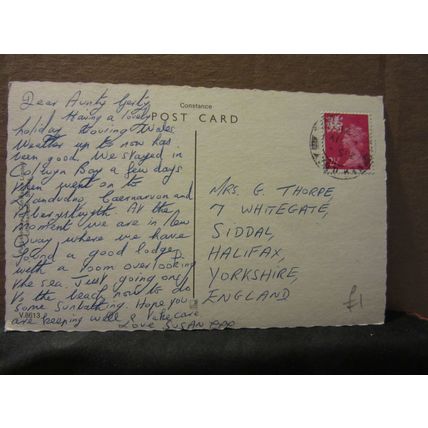 Constance
POST CARD
Dear Aunty Gerty
Having a lovely
holiday touring Wales
Weather up to now has
been good. We stayed in
Colwyn Bay a few days
then went on to
Llandudno, Caernarvon and
Aberystwyth. At the
moment we are in New
Quay where we have
found a good lodge
with a room overlooking
the sea. Just going on
to the beach now to do
some sunbathing. Hope you
are keeping well & take care
Love SUSAN
V.8613
MRS. G. THORPE,
7 WHITEGATE,
SIDDAL,
HALIFAX,
YORKSHIRE,
ENGLAND
£1